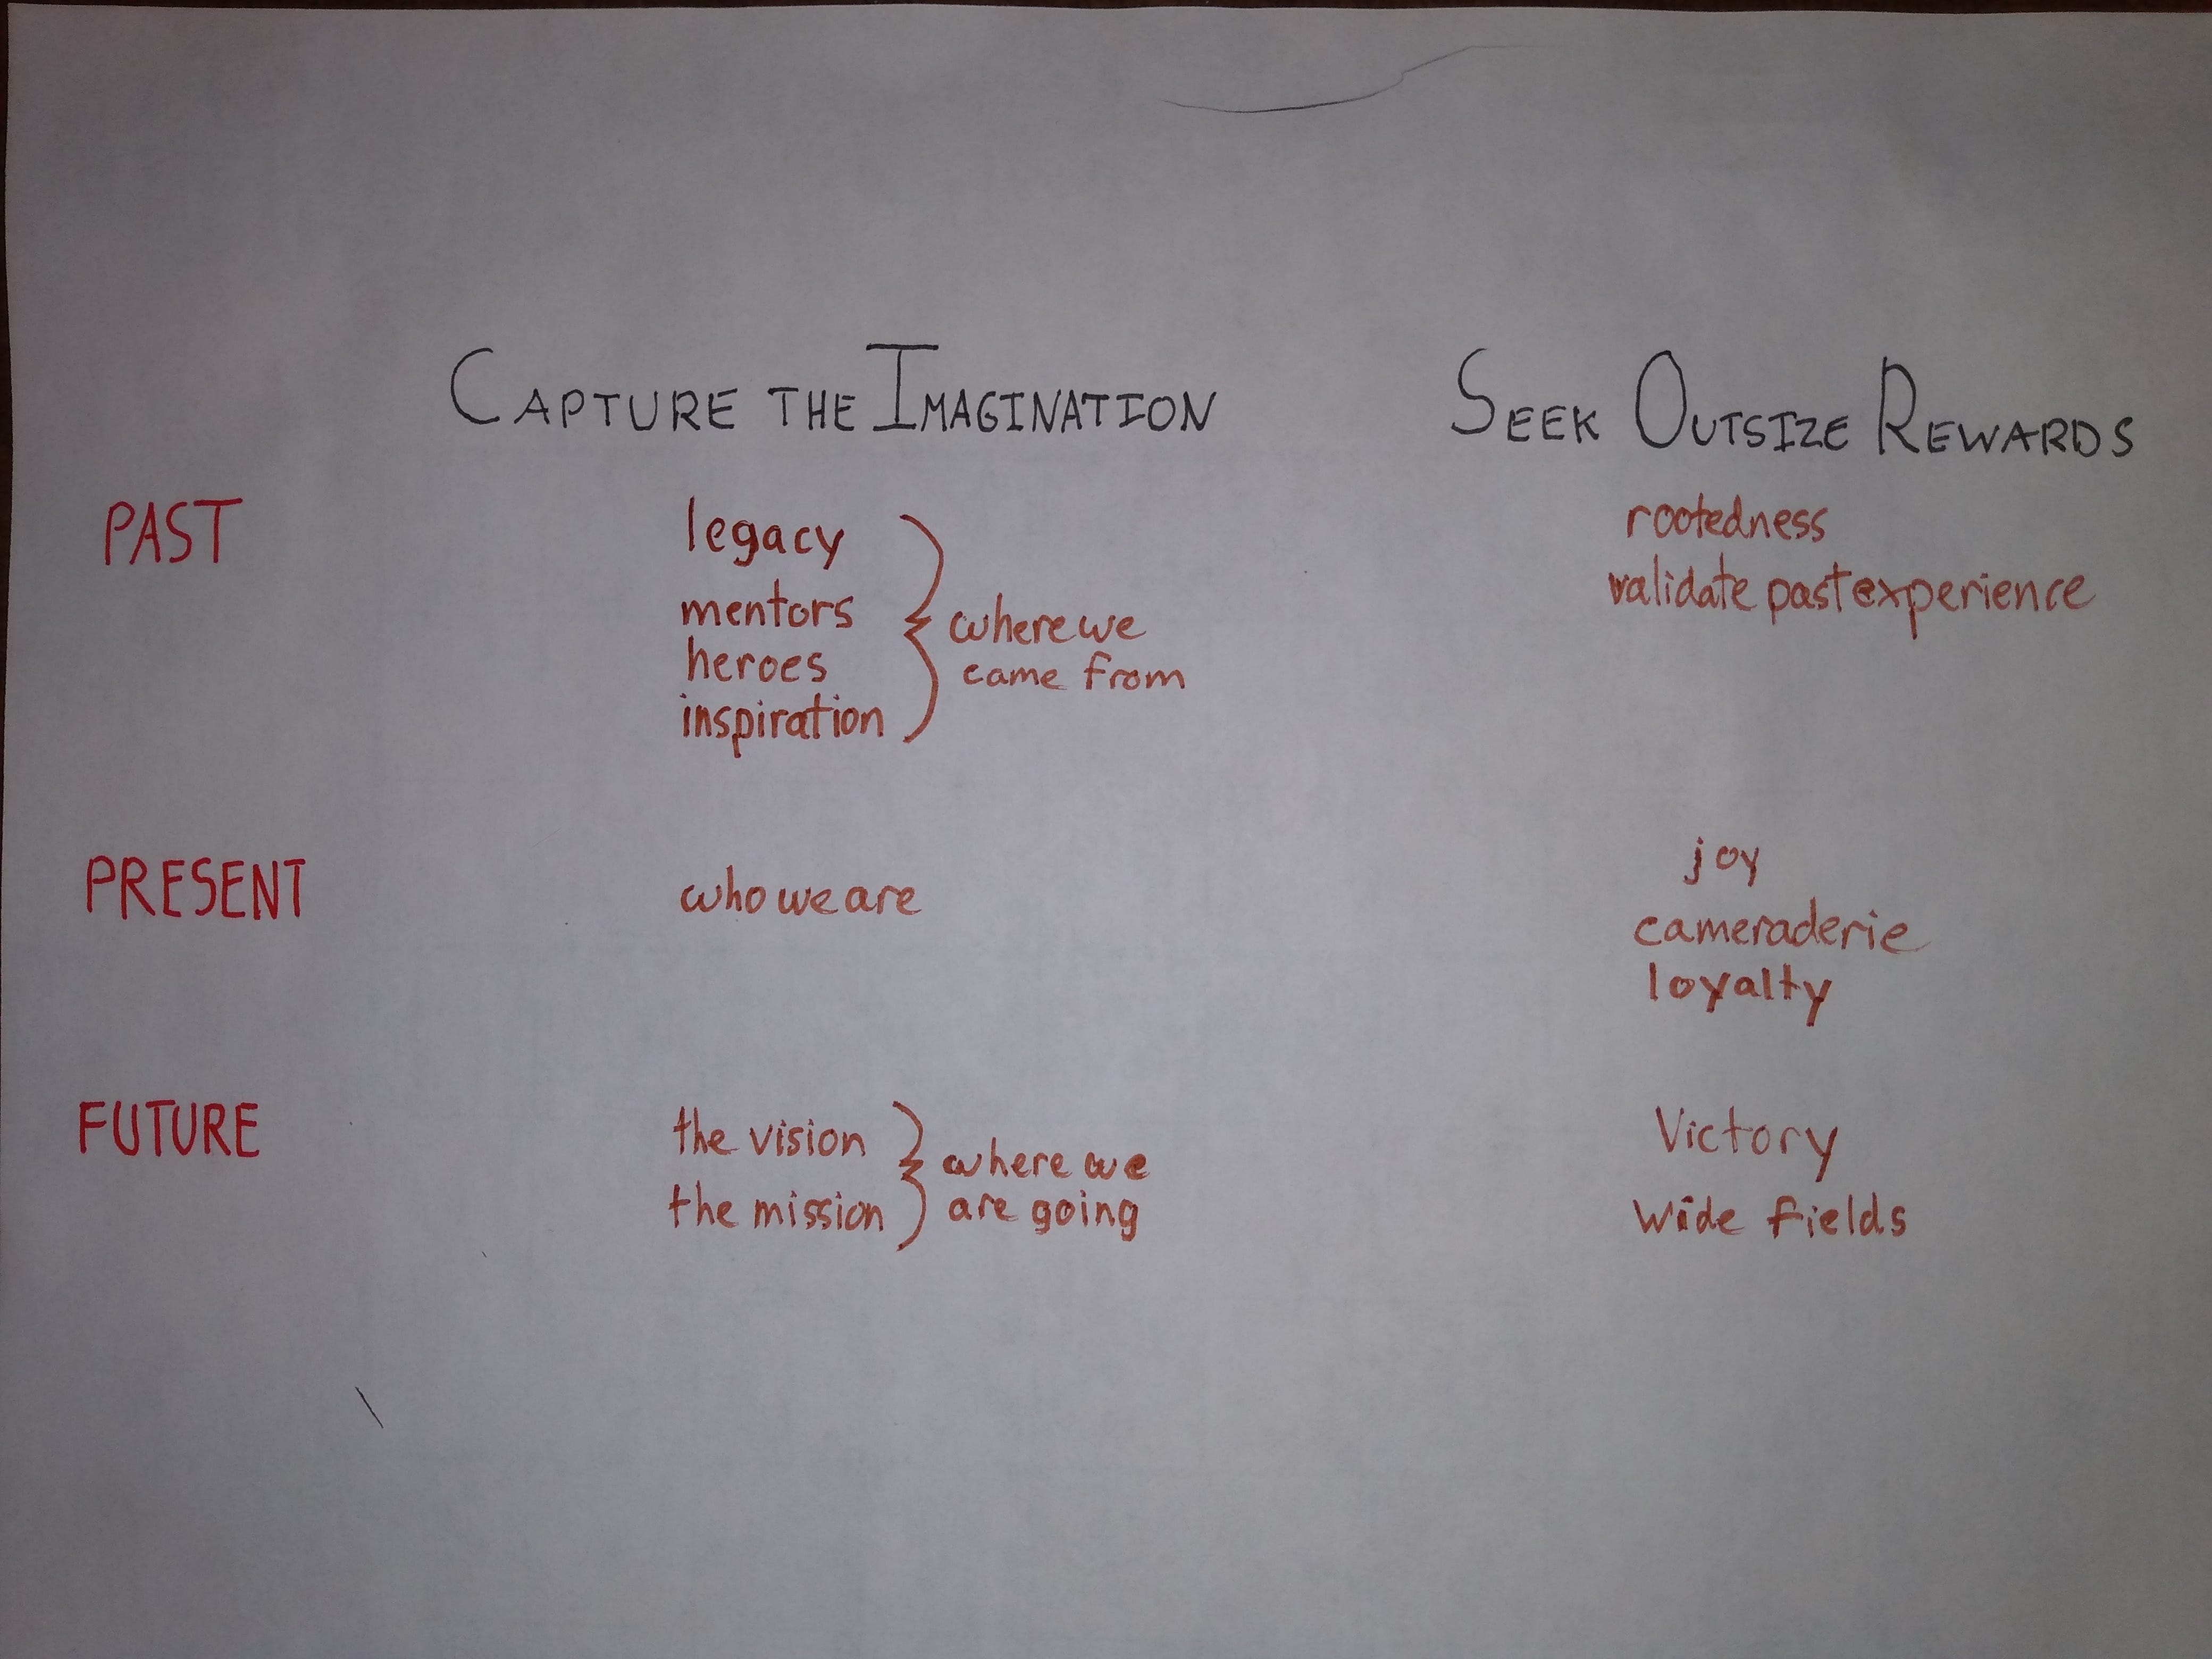 CAPTURE THE IMAGINATION
SEEK OUTSIZE REWARDS
PAST
legacy
mentors
heroes
inspiration
where we
came from
rootedness
validate past experience
PRESENT
who we are
joy
cameraderie
loyalty
FUTURE
the vision
the mission
where we
are going
Victory
Wide fields